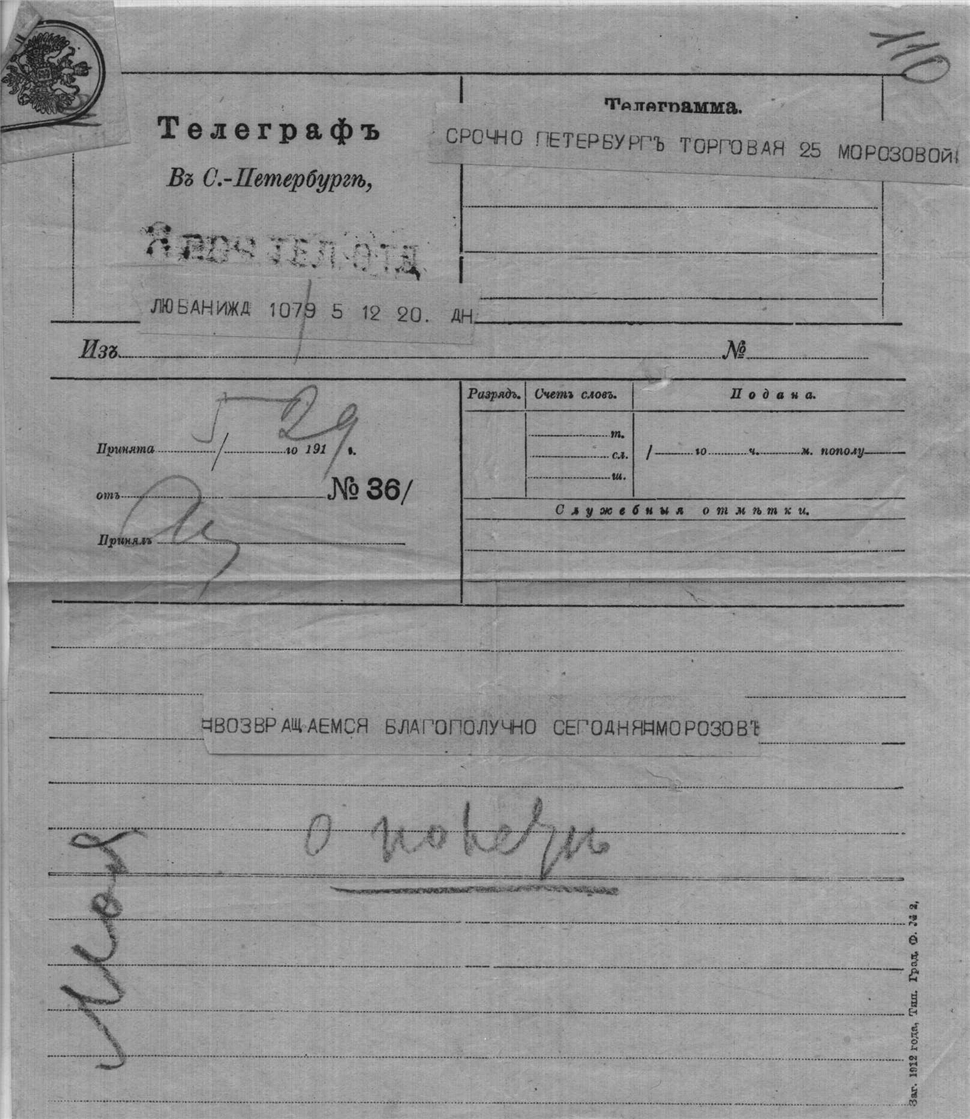 110
Телеграфъ
Въ С.-Петербургѣ,
Телеграмма.
СРОЧНО ПЕТЕРБУРГЪ ТОРГОВАЯ 25 МОРОЗОВОЙ
ЛЮБАНИЖД 1079 5 12 20. ДН
Изъ
№
Принята 5/ го 191 г.
29
отъ № 36/
Принялъ
Разрядъ.
Счетъ словъ.
т.
сл.
ш.
Подана.
/ го ч. м. пополу
Служебныя отмѣтки.
ВОЗВРАЩАЕМСЯ БЛАГОПОЛУЧНО СЕГОДНЯ МОРОЗОВЪ
о
Моя
Заг. 1912 года, Тип. Град. Ф. № 2,